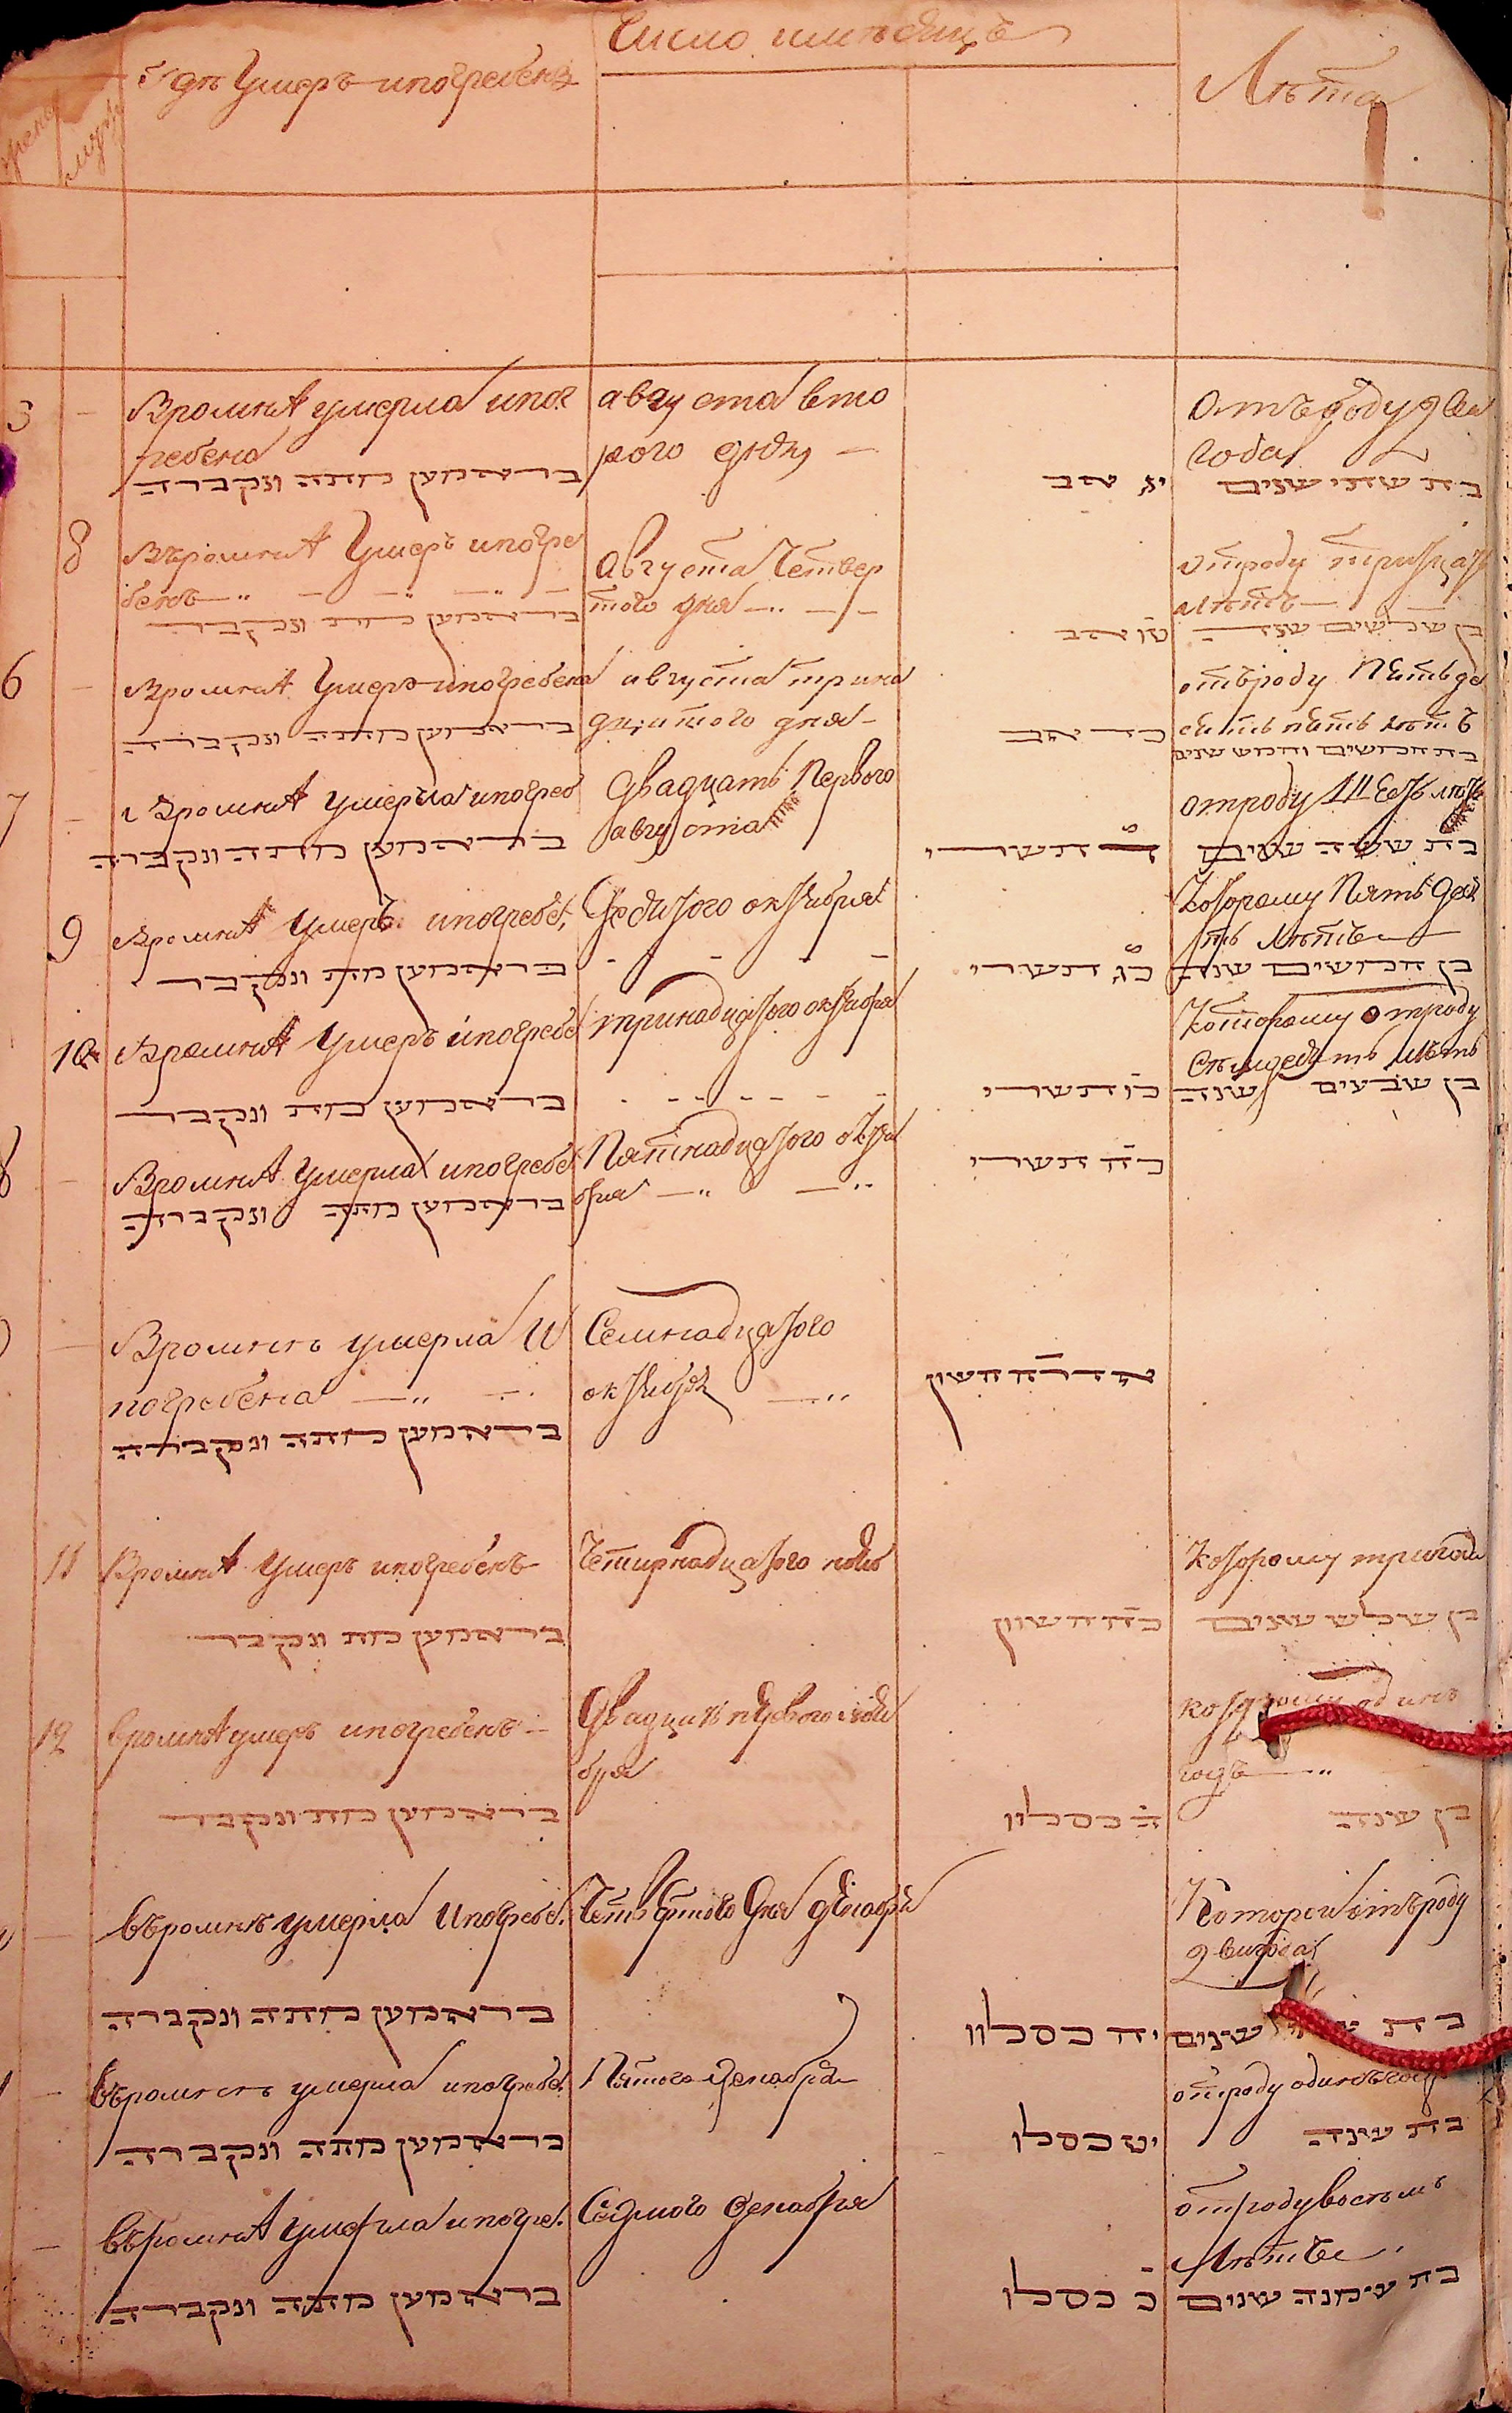 Гдѣ Умеръ ипогребенъ
Число имѣсяцъ
Лѣта
3
Вромнѣ умерла ипог
ребена
בראמען מתה ונקברה
августа вто
рого дня
יג אב
Отъроду два
года
בת שתי שנים
8
Въромнѣ Умеръ ипогре
бенъ
בראמען מת ונקבר
Августа Четвер
того дня
טו אב
отроду тритцать
лѣтъ
בן שלשים שנה
6
Вромнѣ Умеръ ипогребена
בראמען מתה ונקברה
августа трина
дцатого дня
כד אב
отъроду Пѣтьде
сѣть пѣть лѣтъ
בת חמשים וחמש שנים
7
Вромнѣ умерла ипогреб
בראמען מתה ונקברה
Двадцать Первого
августа
תשרי
отроду Шесть лѣтъ
בת ששה שנים
9
Вромнѣ Умеръ ипогребе
בראמען מת ונקבר
октября
כג תשרי
Которому Пять деся
ть Лѣтъ
בן חמשים שנה
10
Вромнѣ Умеръ ипогребе
בראמען מת ונקבר
тринадцатого октября
כז תשרי
Которому отроду
Сѣмдедять лѣтъ
בן שבעים שנה
8
Вромнѣ Умерла ипогребе
בראמען מתה ונקברה
Пятнадцатого октя
бря
כח תשרי
Вромнѣ умерла И
погребена
בראמען מתה ונקברה
Семнадцатого
октября
א דר״ח חשון
11
Вромнѣ Умеръ ипогребенъ
בראמען מת ונקבר
Четирнадцатого нояб
כח חשון
Которому тригода
בן שלש שנים
12
вромнѣ умеръ ипогребенъ
בראמען מת ונקבר
Двадцать первого нояб
бря
ה כסלוו
которому одинъ
годъ
בן שנה
въромнѣ умерла Ипогребе.
בראמען מתה ונקברה
Четвертого Дня декабря
יח כסלוו
Которои отъроду
двагода
בת שתי שנים
въромнѣ умерла ипогребе.
בראמען מתה ונקברה
Пятого декабря
יט כסלו
отроду одинъ годъ
בת שנה
въромнѣ умерла ипогре.
בראמען מתה ונקברה
Седмого декабря
כ כסלו
отроду восѣмь
Лѣтъ
בת שמנה שנים